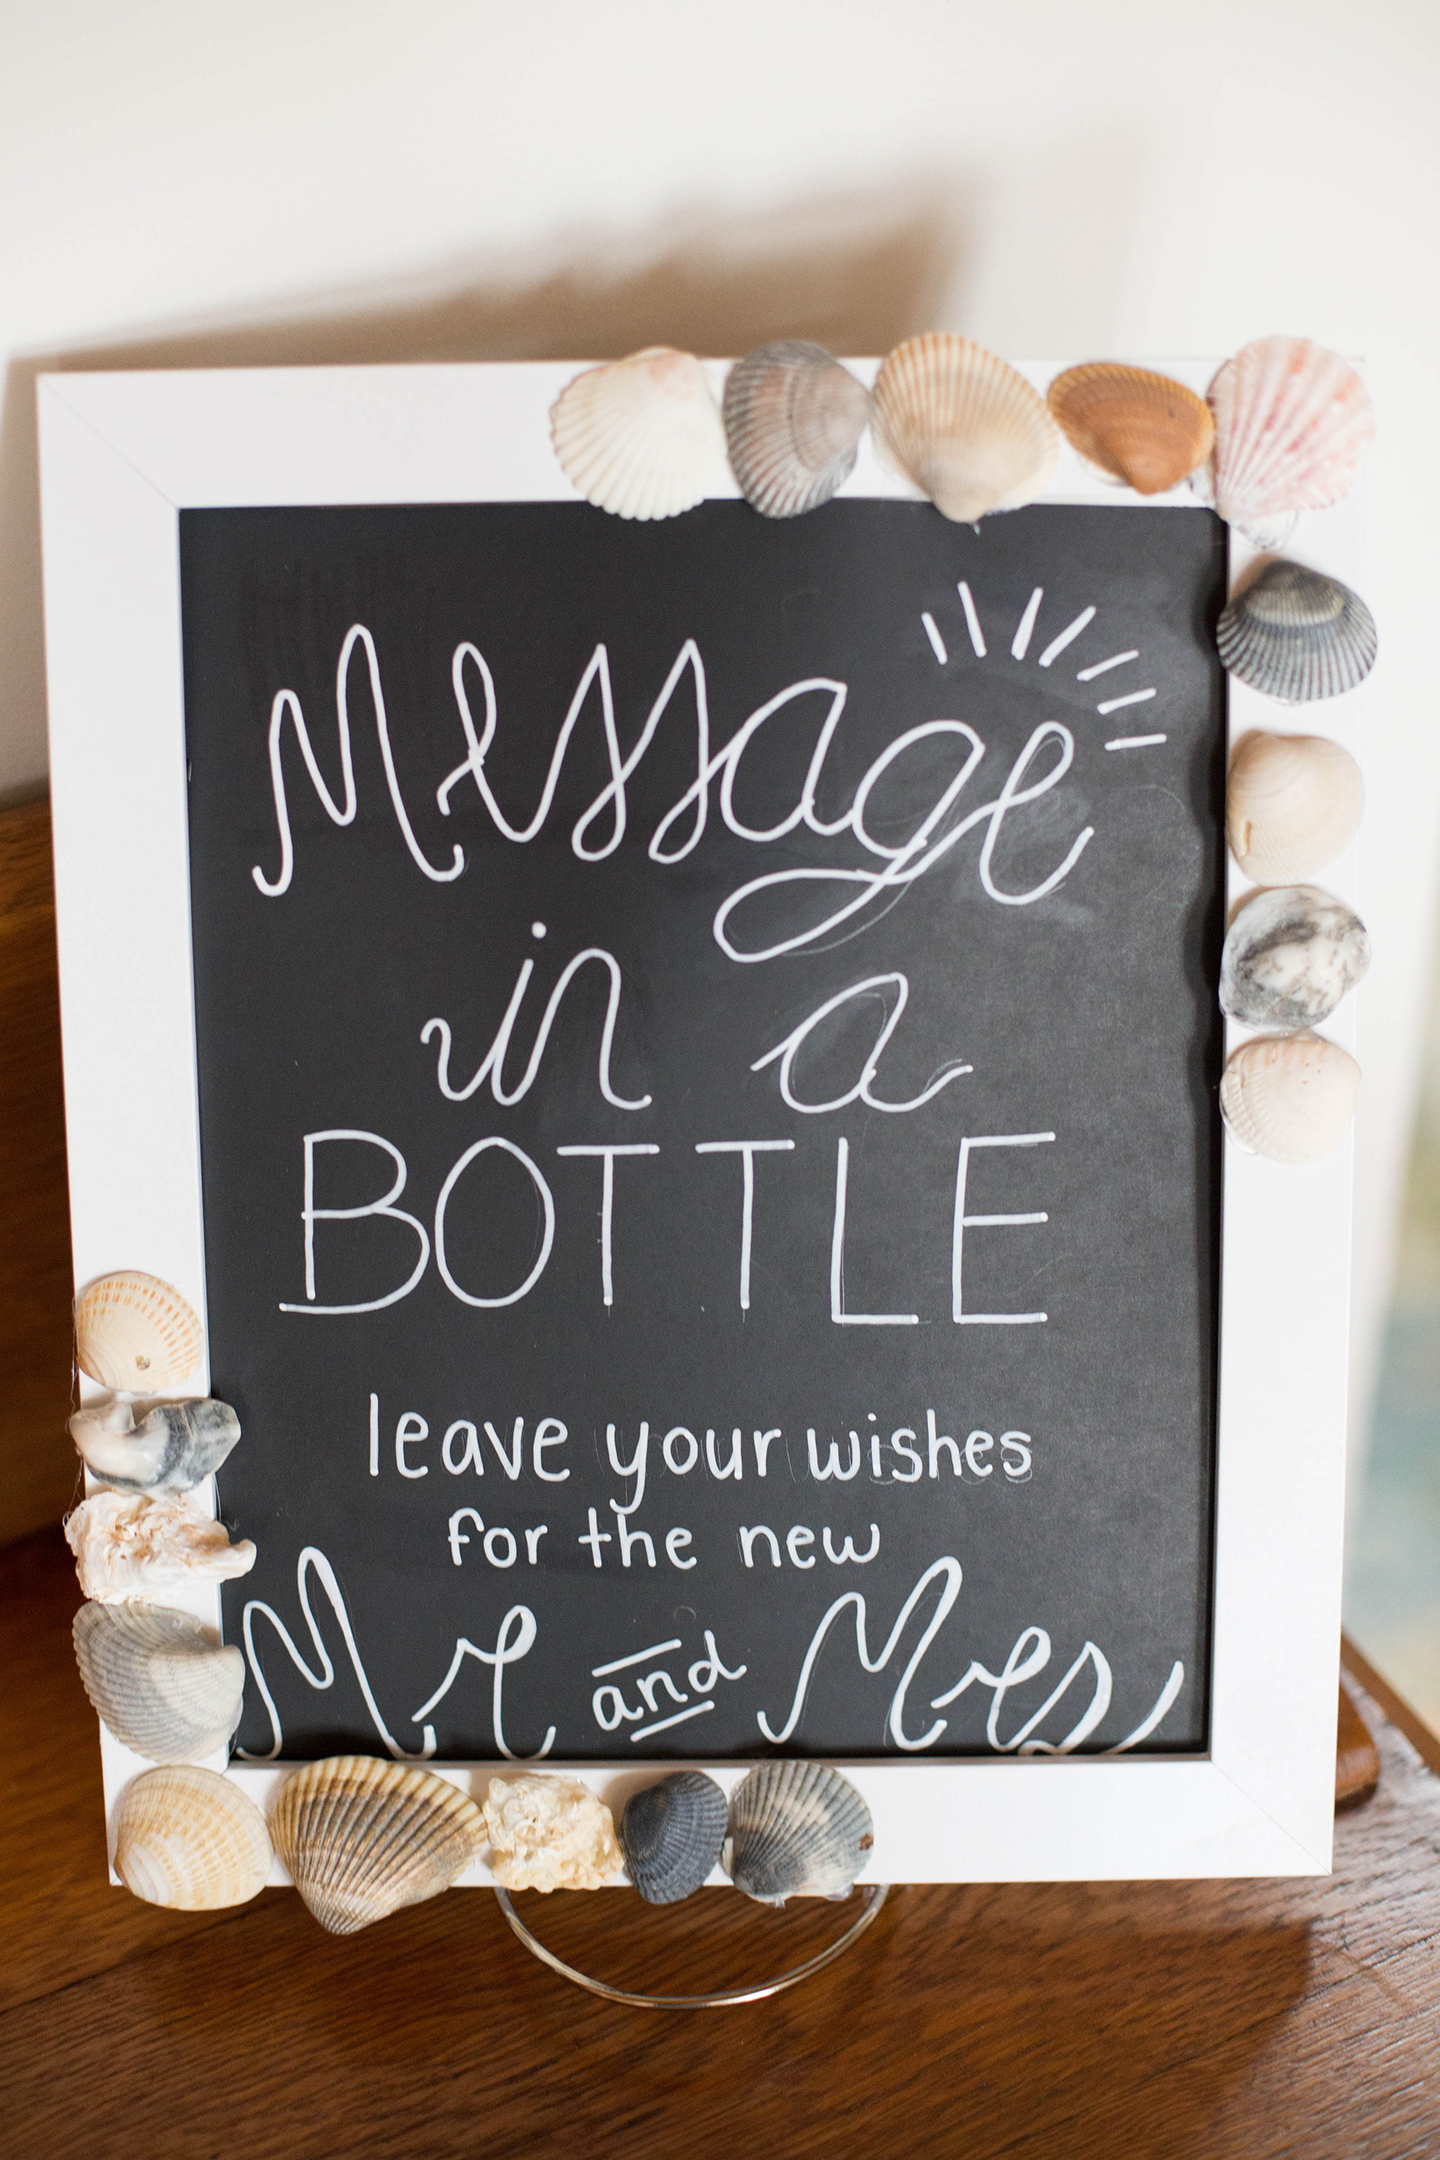 Message
in a
BOTTLE
leave your wishes
for the new
Mr and Mrs